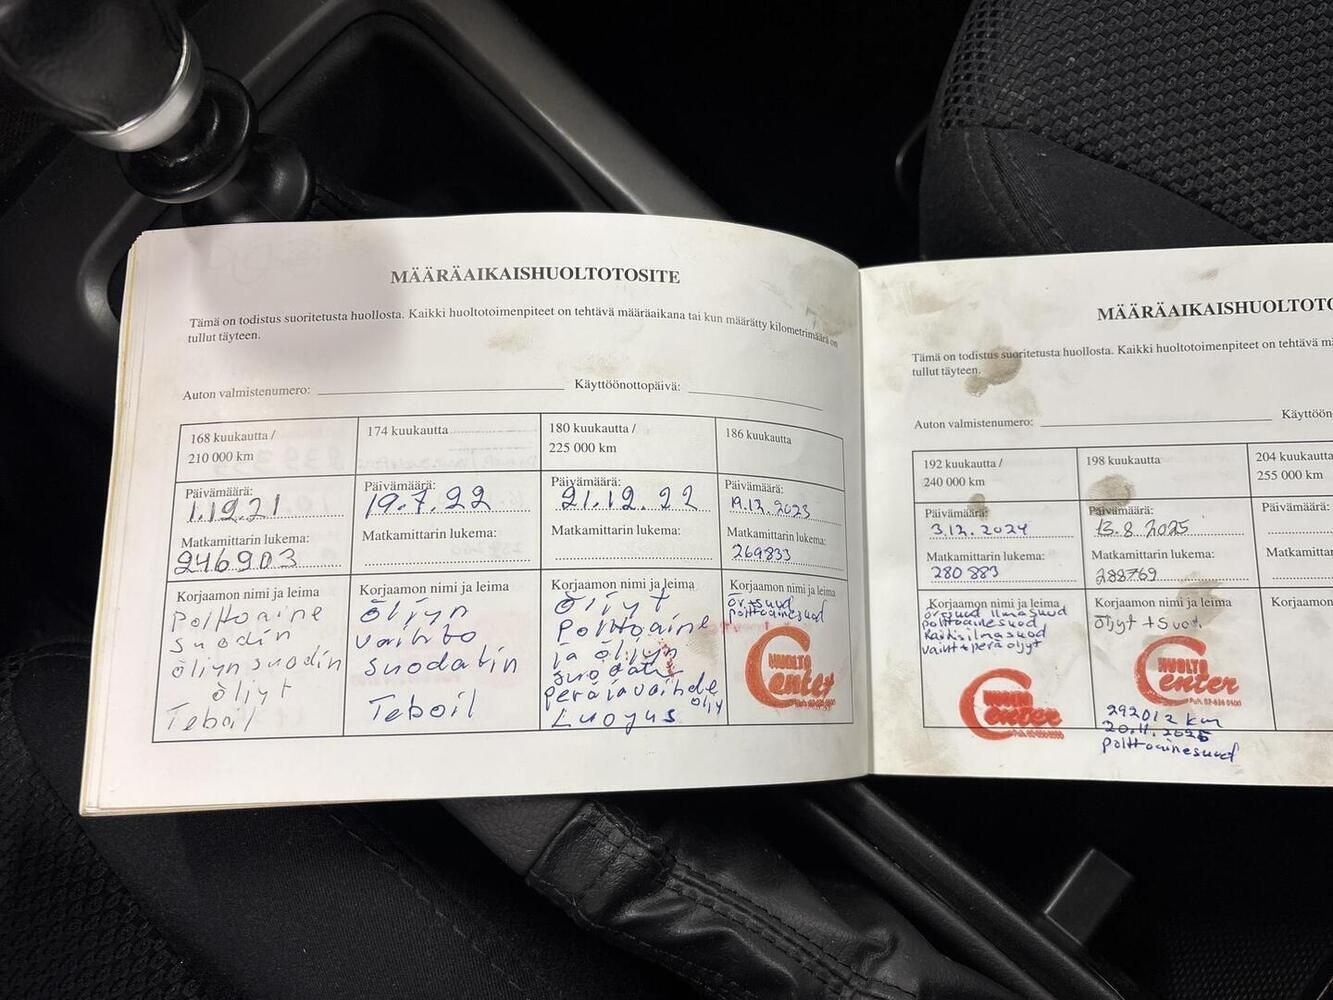 MÄÄRÄAIKAISHUOLTOTOSITE
Tämä on todistus suoritetusta huollosta. Kaikki huoltotoimenpiteet on tehtävä määräaikana tai kun määrätty kilometrimäärä on
tullut täyteen.
Auton valmistenumero:
Käyttöönottopäivä:
168 kuukautta /
210 000 km
Päivämäärä:
1.12.21
Matkamittarin lukema:
246903
Korjaamon nimi ja leima
Polttoaine
suodin
öljyn suodin
öljyt
Teboil
174 kuukautta
Päivämäärä:
19.7.22
Matkamittarin lukema:
Korjaamon nimi ja leima
Öljyn
vaihto
suodatin
Teboil
180 kuukautta /
225 000 km
Päivämäärä:
21.12.22
Matkamittarin lukema:
Korjaamon nimi ja leima
Öljyt
Polttoaine
ja öljyn
perä ja vaihde
öljy
186 kuukautta
Päivämäärä:
19.12.2023
Matkamittarin lukema:
269833
Korjaamon nimi ja leima
polttoainesuod
HUOLTO
Center
MÄÄRÄAIKAISHUOLTOTO
Tämä on todistus suoritetusta huollosta. Kaikki huoltotoimenpiteet on tehtävä mä
tullut täyteen.
Auton valmistenumero:
Käyttöön
192 kuukautta /
240 000 km
Päivämäärä:
3.12.2024
Matkamittarin lukema:
280 883
Korjaamon nimi ja leima
ilmasuod
polttoainesuod
Raitisilmasuod
vaiht + perä öljyt
HUOLTO
Center
198 kuukautta
Päivämäärä:
13.8.2025
Matkamittarin lukema:
288769
Korjaamon nimi ja leima
öljyt + suod.
HUOLTO
Center
292012 km
20.11.2025
polttoainesuod
204 kuukautta
255 000 km
Päivämäärä:
Matkamittar
Korjaamon